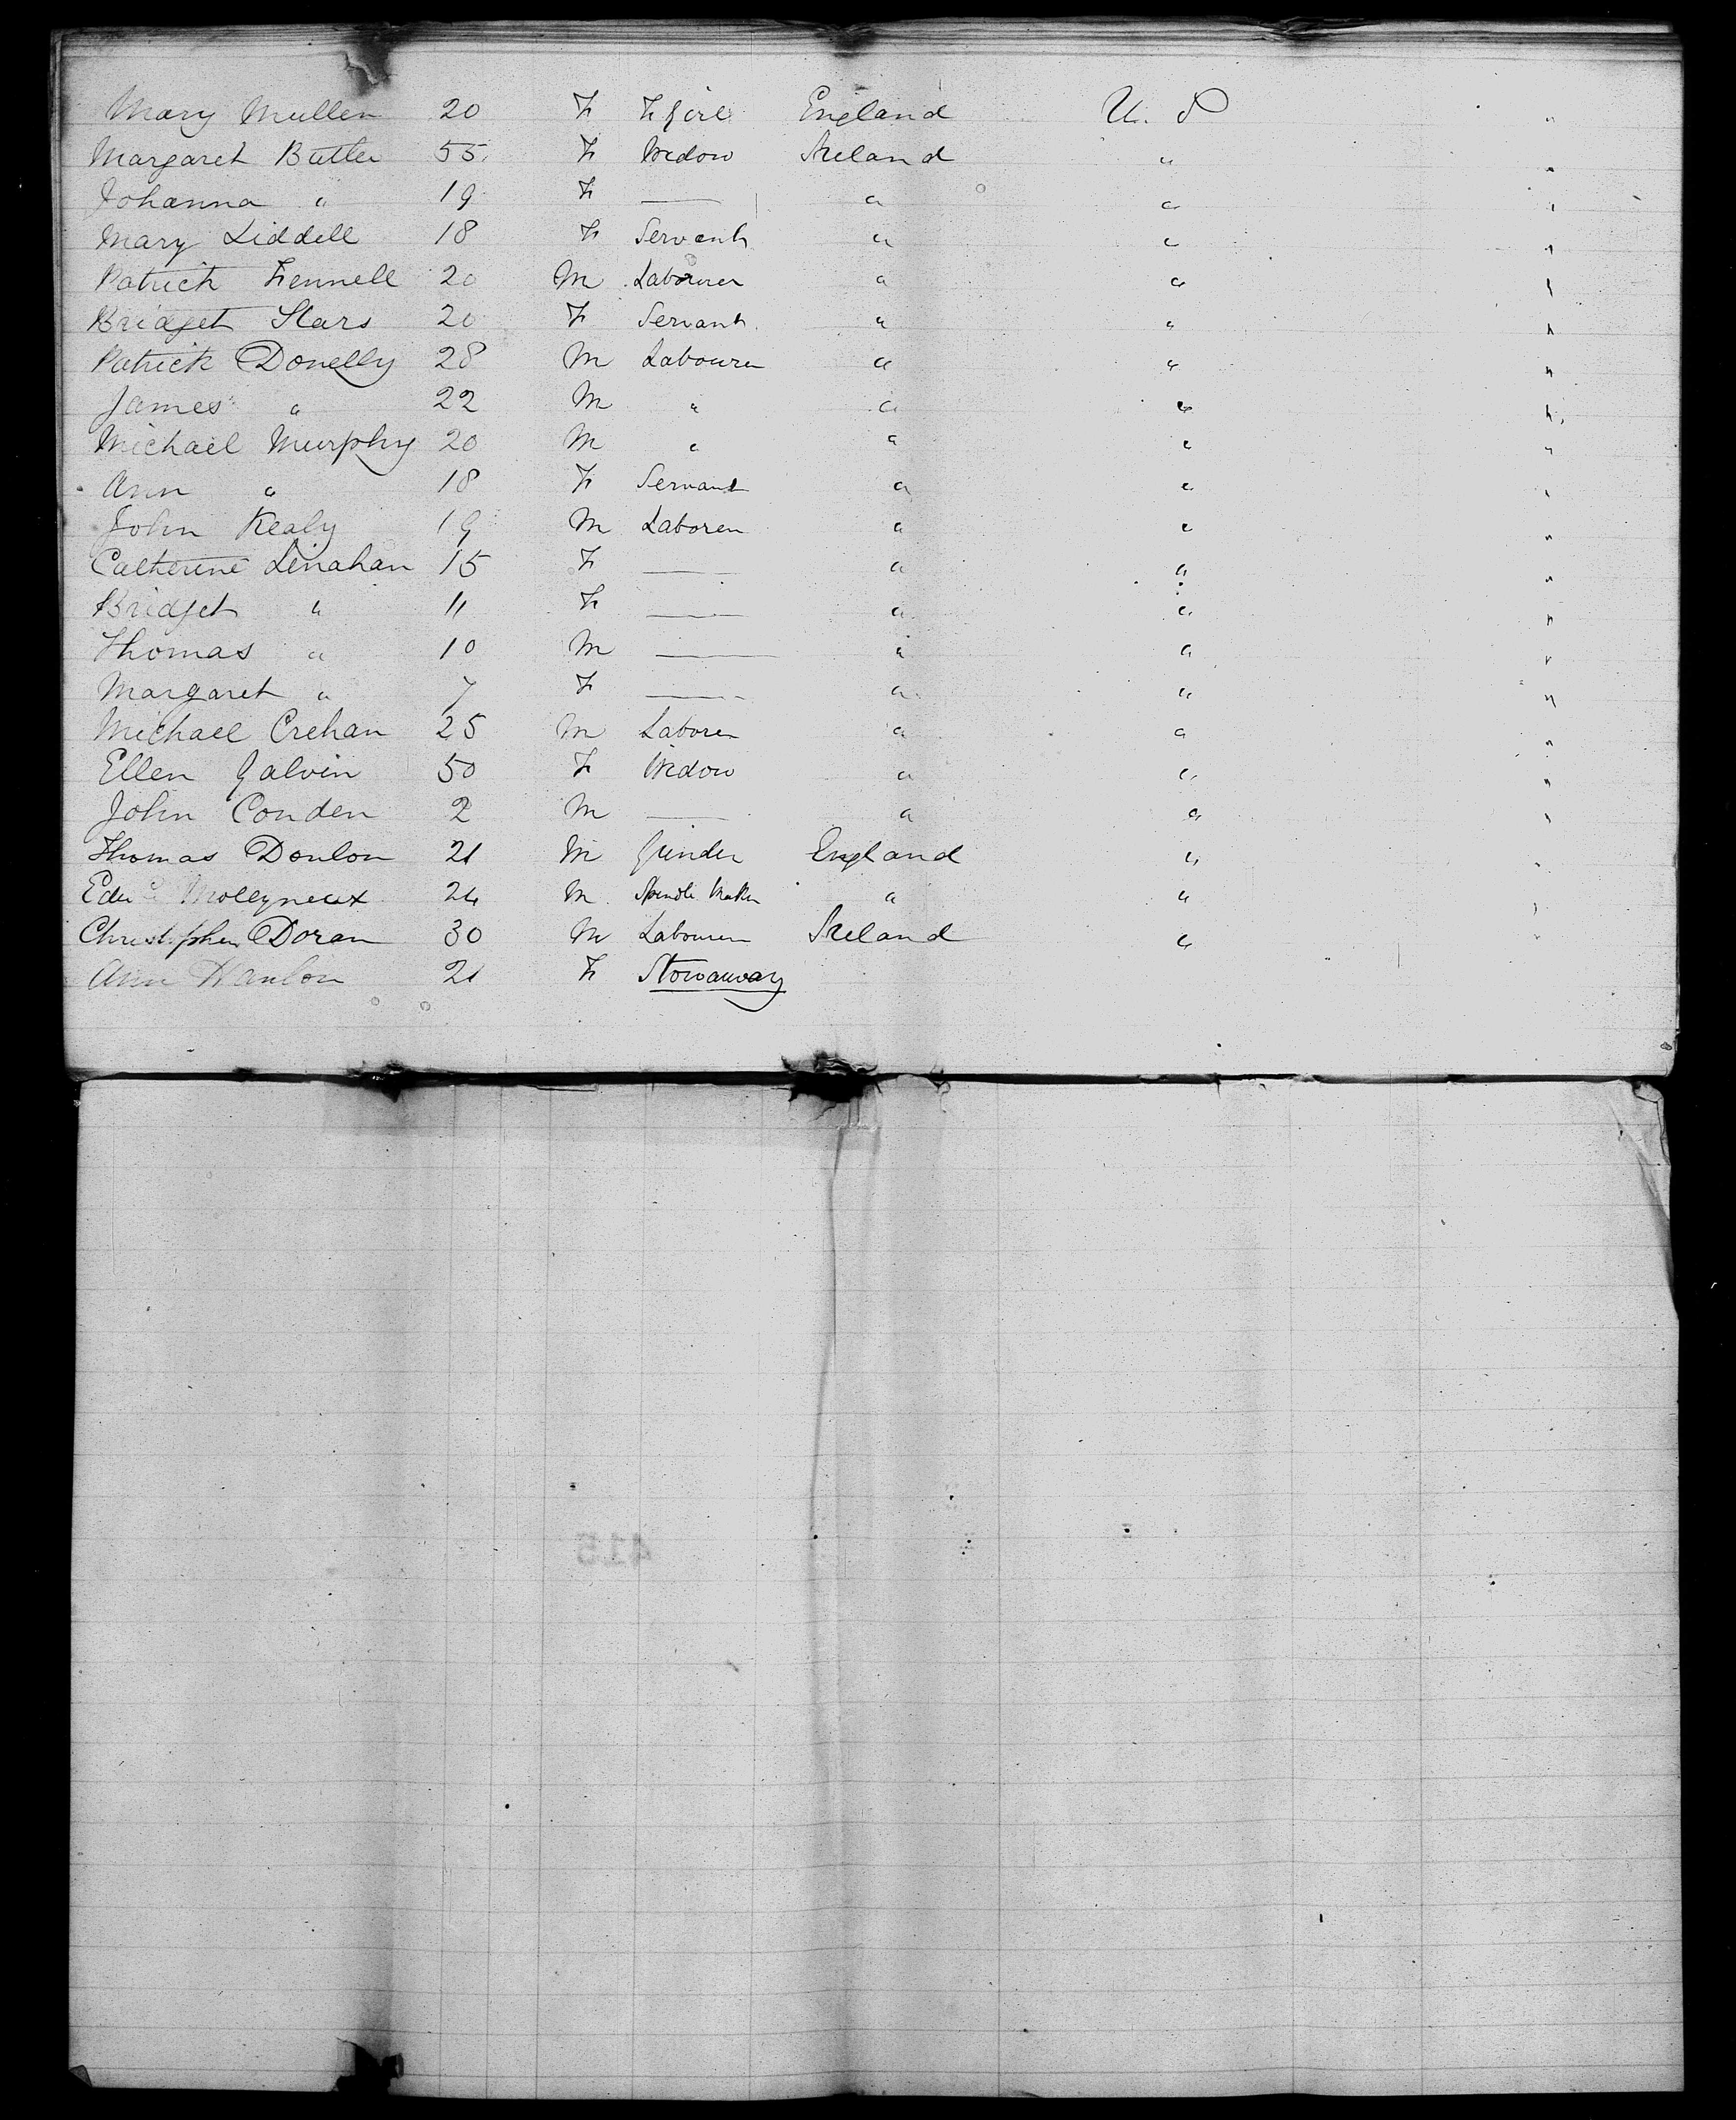 Mary Mullen 20 F F Girl England U. S "
Margaret Butler 55 F Widow Ireland " "
Johanna " 19 F — " " "
Mary Liddell 18 F Servant " " "
Patrick Fennell 20 M Labourer " " "
Bridget Stars 20 F Servant " " "
Patrick Donelly 28 M Labourer " " "
James " 22 M " " " "
Michael Murphy 20 M " " " "
Ann " 18 F Servant " " "
John Kealy 19 M Laborer " " "
Catherine Linahan 15 F — " " "
Bridget " 11 F — " " "
Thomas " 10 M — " " "
Margaret " 7 F — " " "
Michael Crehan 25 M Laborer " " "
Ellen Galvin 50 F Widow " " "
John Conden 2 M — " " "
Thomas Donlon 21 M Grinder England "
Edwd Mollyneux 24 M Spindle Maker " " "
Christopher Doran 30 M Labourer Ireland " "
Ann Hanlon 21 F Stowaway
415